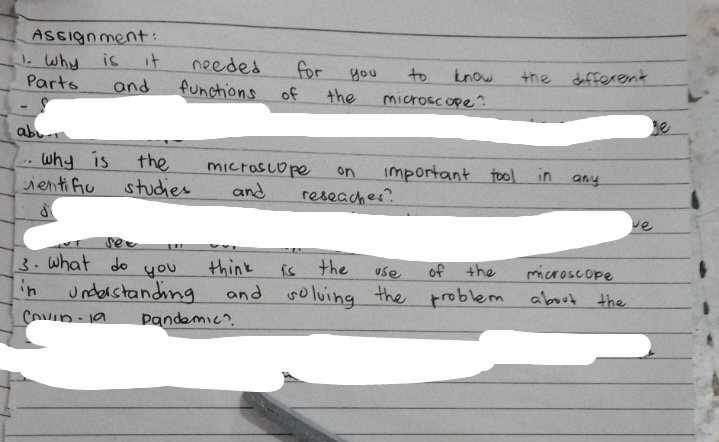 Assignment:
1. Why is it needed for you to know the different
Parts and functions of the microscope?
-
.. Why is the microscope on important tool in any
ientific studies and reseaches?
see
3. What do you think is the use of the microscope
in understanding and solving the problem about the
COVID-19 pandemic?